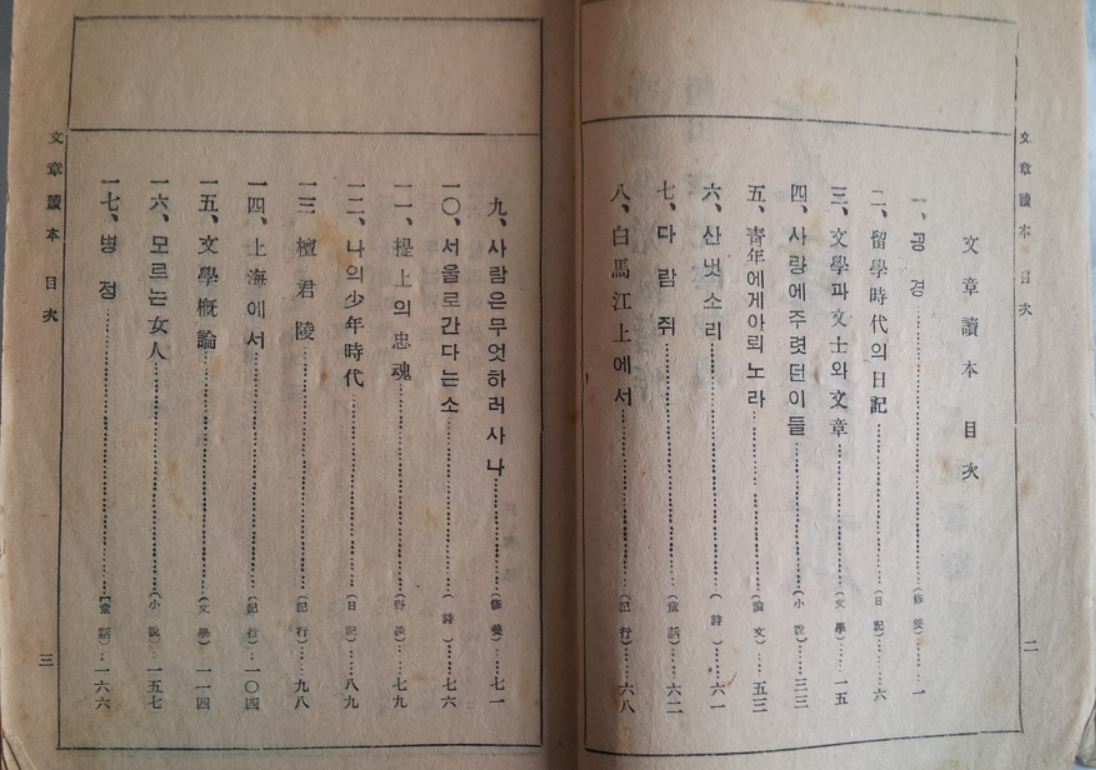 文章讀本 目次
二
文章讀本 目次
一、굉경……(修養)……一
二、留學時代의日記……(日記)……六
三、文學과文士와文章……(文學)……一五
四、사랑에주렷던이들……(小說)……三三
五、靑年에게아뢰노라……(論文)……五三
六、산냇소리……(詩)……六一
七、다람쥐……(童話)……六二
八、白馬江上에서……(記行)……六八
九、사람은무엇하러사나……(修養)……七一
一〇、서울로간다는소……(詩)……七六
一一、提上의忠魂……(野談)……七九
一二、나의少年時代……(日記)……八九
一三 檀君陵……(記行)……九八
一四、上海에서……(記行)……一〇四
一五、文學槪論……(文學)……一一四
一六、모르는女人……(小說)……一五七
一七、병정……(童話)……一六六
文章讀本 目次
三